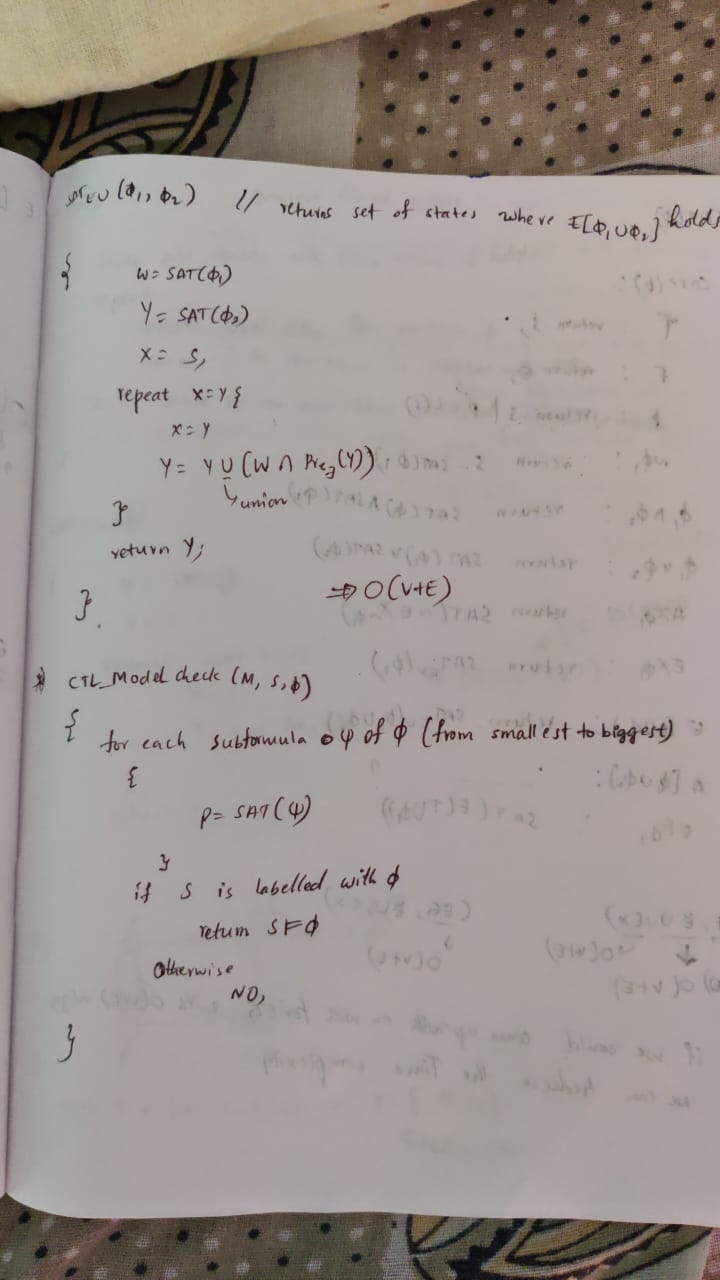 SATEU (ϕ₁, ϕ₂) // returns set of states where E[ϕ₁ ∪ ϕ₂] holds
{
W = SAT(ϕ₁)
Y = SAT(ϕ₂)
X = S,
repeat X = Y {
X = Y
Y = Y ∪ (W ∩ Pre∃(Y))
↳ union
}
return Y;
⇒ O(V+E)
}.
*) CTL_Model check (M, S, ϕ)
{
for each subformula ψ of ϕ (from smallest to biggest)
{
P = SAT(ψ)
}
if S is labelled with ϕ
return S ⊨ ϕ
Otherwise
NO,
}